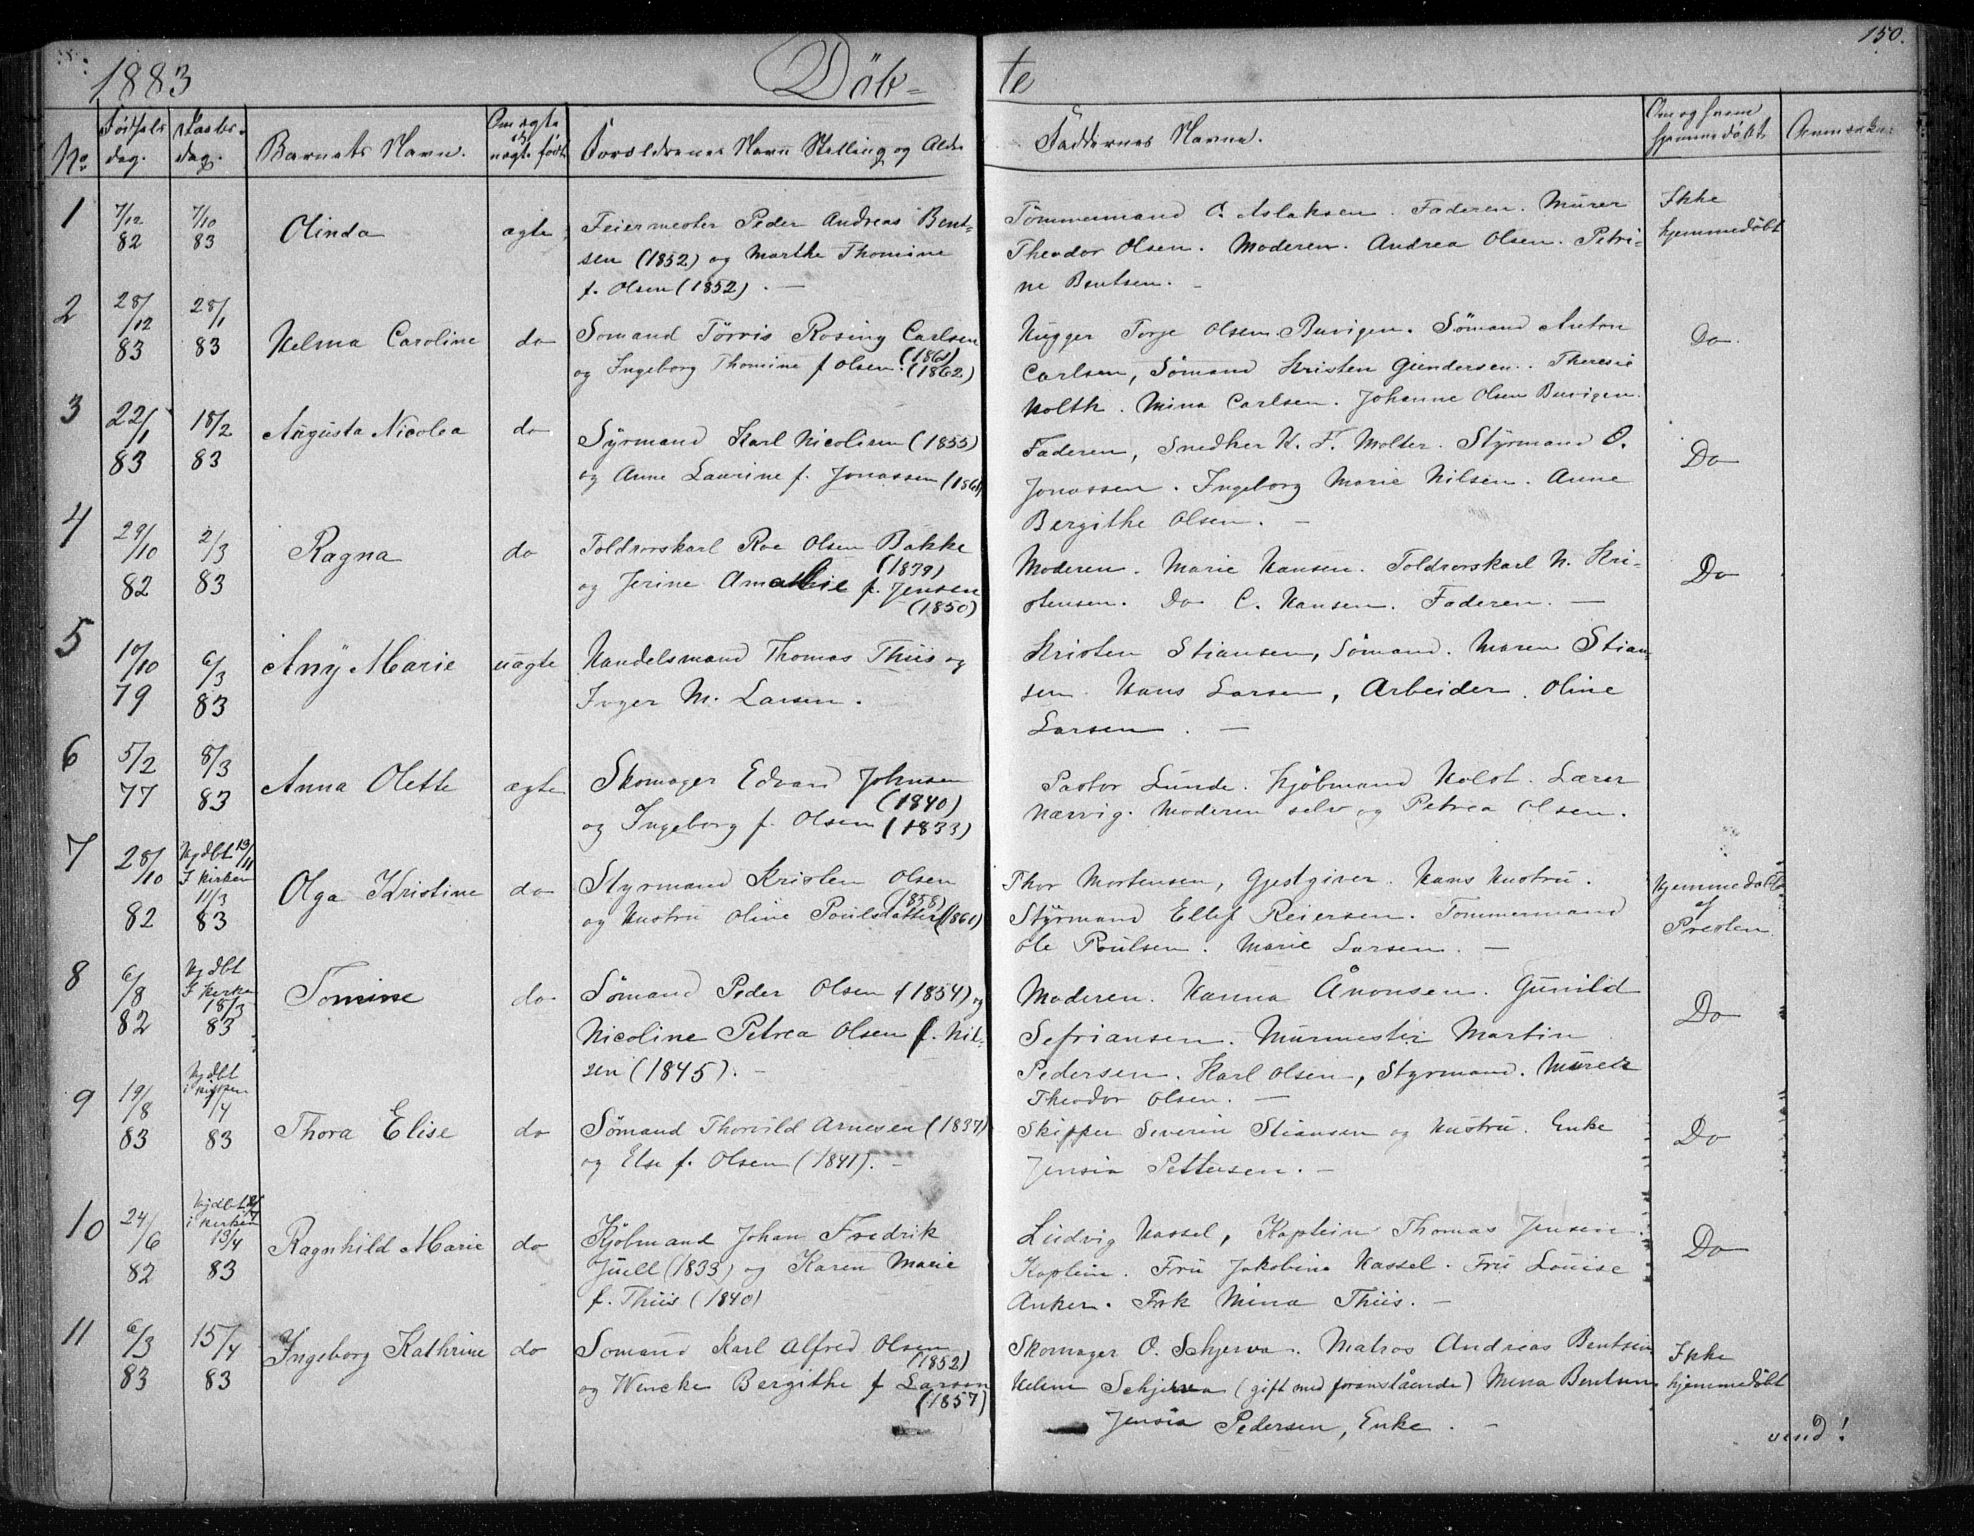 150.
1883 Døb- te
No. Fødsels dag. Daabs- dag. Barnets Navn. Om ægte eller uægte født Forældrenes Navn Stilling og Alder Faddernes Navne. Om og hvem hjemmedøbt Anmærkn.
1 7/12 82 7/10 83 Olinda ægte
Feiermester Peder Andreas Bent-
sen (1852) og Marthe Thomine
f. Olsen (1852). —
Tømmermand O. Aslaksen. Faderen. Murer
Theodor Olsen. Moderen. Andrea Olsen. Petri-
ne Bentsen. -
Ikke
hjemmedøbt
2 28/12 83 28/1 83 Helma Caroline do
Sømand Tørris Rosing Carlsen
(1861)
og Ingeborg Thomine f Olsen. (1862)
Hugger Torje Olsen Buvigen. Sømand Anton
Carlsen, Sømand Kristen Gundersen. Theresie
Holth. Mina Carlsen. Johanne Olsen Buvigen.
Do.
3 22/1 83 18/2 83 Augusta Nicolea do
Syrmand Karl Nicolisen (1855)
og Anne Laurine f. Jonassen (1861)
Faderen, Snedker H. F. Molter. Styrmand O.
Jonassen. Ingeborg Marie Nilsen. Anne
Bergithe Olsen. —
Do
4 29/10 82 2/3 83 Ragna do
Toldrorskarl Roe Olsen Bakke
(1879)
og Jerine Amalie f. Jensen
(1850)
Moderen. Marie Hansen. Toldrorskarl N. Kri-
stensen. Do C. Hansen. Faderen. —
Do
5 10/10 79 6/3 83 Any Marie uægte
Handelsmand Thomas Thiis og
Inger M. Larsen.
Kristen Stiansen, Sømand. Maren Stian-
sen. Hans Larsen, Arbeider. Oline
Larsen. —
6 5/2 77 8/3 83 Anna Olette ægte
Skomager Edvard Johnsen
(1840)
og Ingeborg f. Olsen (1833)
Pastor Lunde. Kjøbmand Holst. Lærer
Narvig. Moderen selv og Petrea Olsen.
7 28/10 82 Hjdbt 13/11 I Kirken 11/3 83 Olga Kristine do
Styrmand Kristen Olsen
(1858)
og Hustru Oline Poulsdatter (1861)
Thor Mortensen, Gjestgiver. Hans Hustru.
Styrmand Ellef Reiersen. Tømmermand
Ole Poulsen. Marie Larsen. —
Hjemmedøbt
af
Presten
8 6/8 82 Hjdbt I Kirken 18/3 83 Tomine do
Sømand Peder Olsen (1854) og
Nicoline Petrea Olsen f. Nil-
sen (1845). -
Moderen. Hanna Aronsen. Gunild
Sefriansen. Murmester Martin
Pedersen. Karl Olsen, Styrmand. Murer
Theodor Olsen. —
Do
9 19/8 83 Hjdbt i Kirken 1/4 83 Thora Elise do
Sømand Thorvild Arnesen (1837)
og Else f. Olsen (1841). -
Skipper Severin Stiansen og Hustru. Enke
Jensia Pettersen. —
Do
10 24/6 82 Hjdbt i Kirken 13/4 83 Ragnhild Marie do
Kjøbmand Johan Fredrik
Juell (1833) og Karen Marie
f. Thiis (1840)
Ludvig Hassel, Kaptein Thomas Jensen.
Kaptein. Fru Jakobine Hassel. Fru Louise
Anker. Frk Mina Thiis. —
Do
11 6/3 83 15/4 83 Ingeborg Kathrine do
Sømand Karl Alfred Olsen
(1852)
og Wencke Bergithe f Larsen
(1857)
Skomager O. Schjerva. Matros Andreas Bentsen
Helene Schjerva (gift med foranstående) Mina Bentsen
Jensia Pedersen, Enke. —
Ikke
hjemmedøbt
vend!